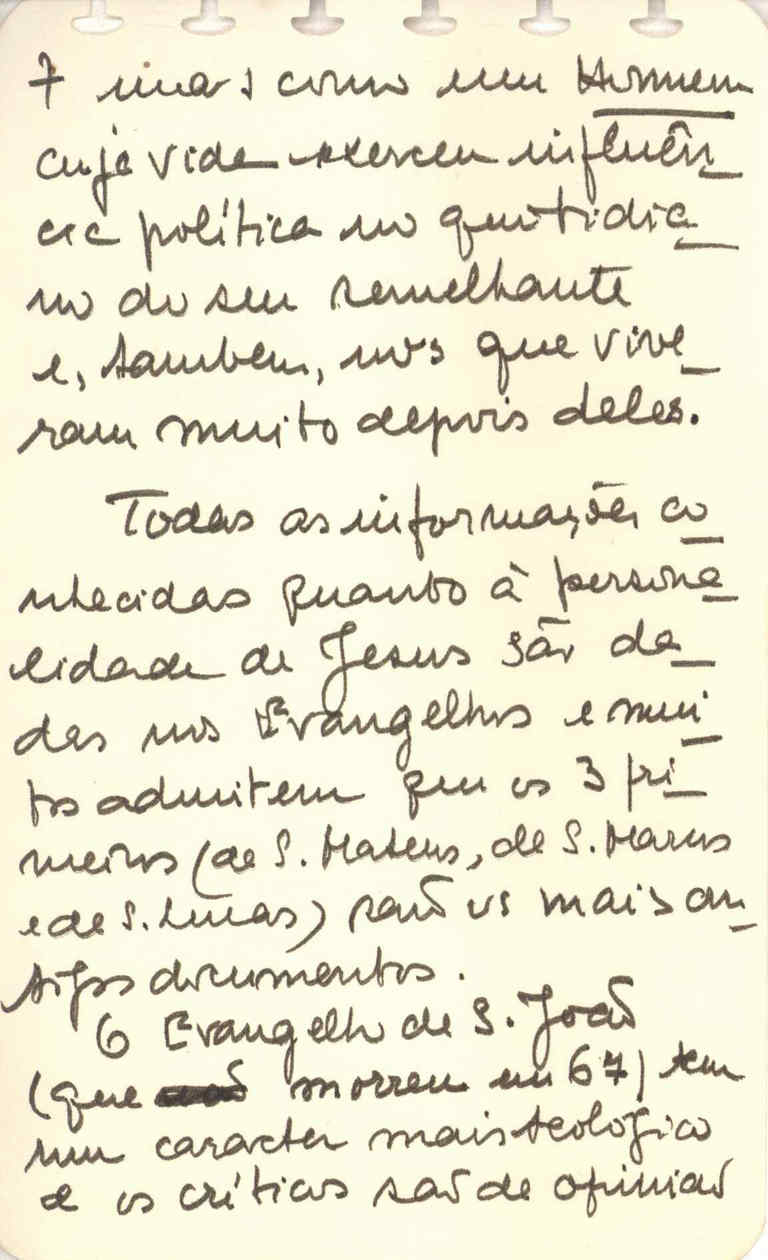 7 mas como um Homem
cuja vida exerceu influên_
cia política no quotidia_
no do seu semelhante
e, também, nós que vive_
ram muito depois deles.
Todas as informações co_
nhecidas quanto à persona_
lidade de Jesus são da_
das nos Evangelhos e mui_
tos admitem que os 3 pri_
meiros (de S. Mateus, de S. Marcos
e de S. Lucas) são os mais an_
tigos documentos.
O Evangelho de S. João
(que morreu em 67) tem
um caracter mais teologico
e os críticos são de opinião